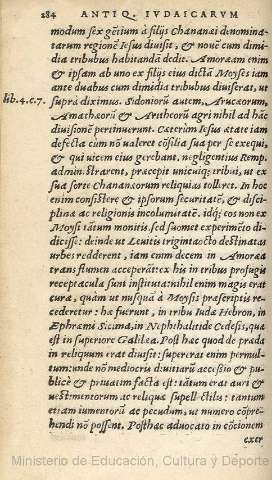 284 ANTIQ. IVDAICARVM
modum sex gẽtium à filijs Chananæi denomina-
tarum regionẽ Iesus diuisit, & nouẽ cum dimi-
dia tribubus habitandã dedit. Amoræam enim
& ipsam ab uno ex filijs eius dictã Moyses iam
ante duabus cum dimidia tribubus diuiserat, ut
lib.4.c.7. suprà diximus. Sidoniorũ autem, Arucæorum,
Amathæorũ & Aratheorũ agri nihil ad hãc
diuisionẽ pertinuerunt. Cæterùm Iesus ætate iam
defecta cùm nõ ualeret cõsilia sua per se exequi,
& qui uicem eius gerebant, negligentius Remp.
administrarent, præcepit unicuiq; tribui, ut ex
sua sorte Chananæorum reliquias tolleret. In hoc
enim consistere & ipsorum securitatẽ, & disci-
plinæ ac religionis incolumitatẽ. idq; eos non ex
Moysi tãtum monitis. sed suomet experimẽto di-
dicisse: deinde ut Leuitis trigintaocto destinatas
urbes redderent, iam enim decem in Amoræa
trans flumen acceperãt: ex his in tribus profugis
receptacula sunt instituta: nihil enim magis erat
curæ, quàm ut nusquã à Moysis præscriptis re-
cederetur: hæ fuerunt, in tribu Iuda Hebron, in
Ephræmi Sicima, in Nephthalitide Cedesis, quæ
est in superiore Galilæa. Post hæc quod de præda
in reliquum erat diuisit: supererat enim permul-
tum: unde nõ mediocris diuitiarũ accessio & pu-
blicè & priuatim facta est: tãtum erat auri &
uestimentorum ac reliquæ supellectilis: tantum
etiam iumentorũ ac pecudum, ut numero cõpre-
hendi nõ possent. Posthac aduocato in cõcionem
exer
Ministerio de Educación, Cultura y Deporte